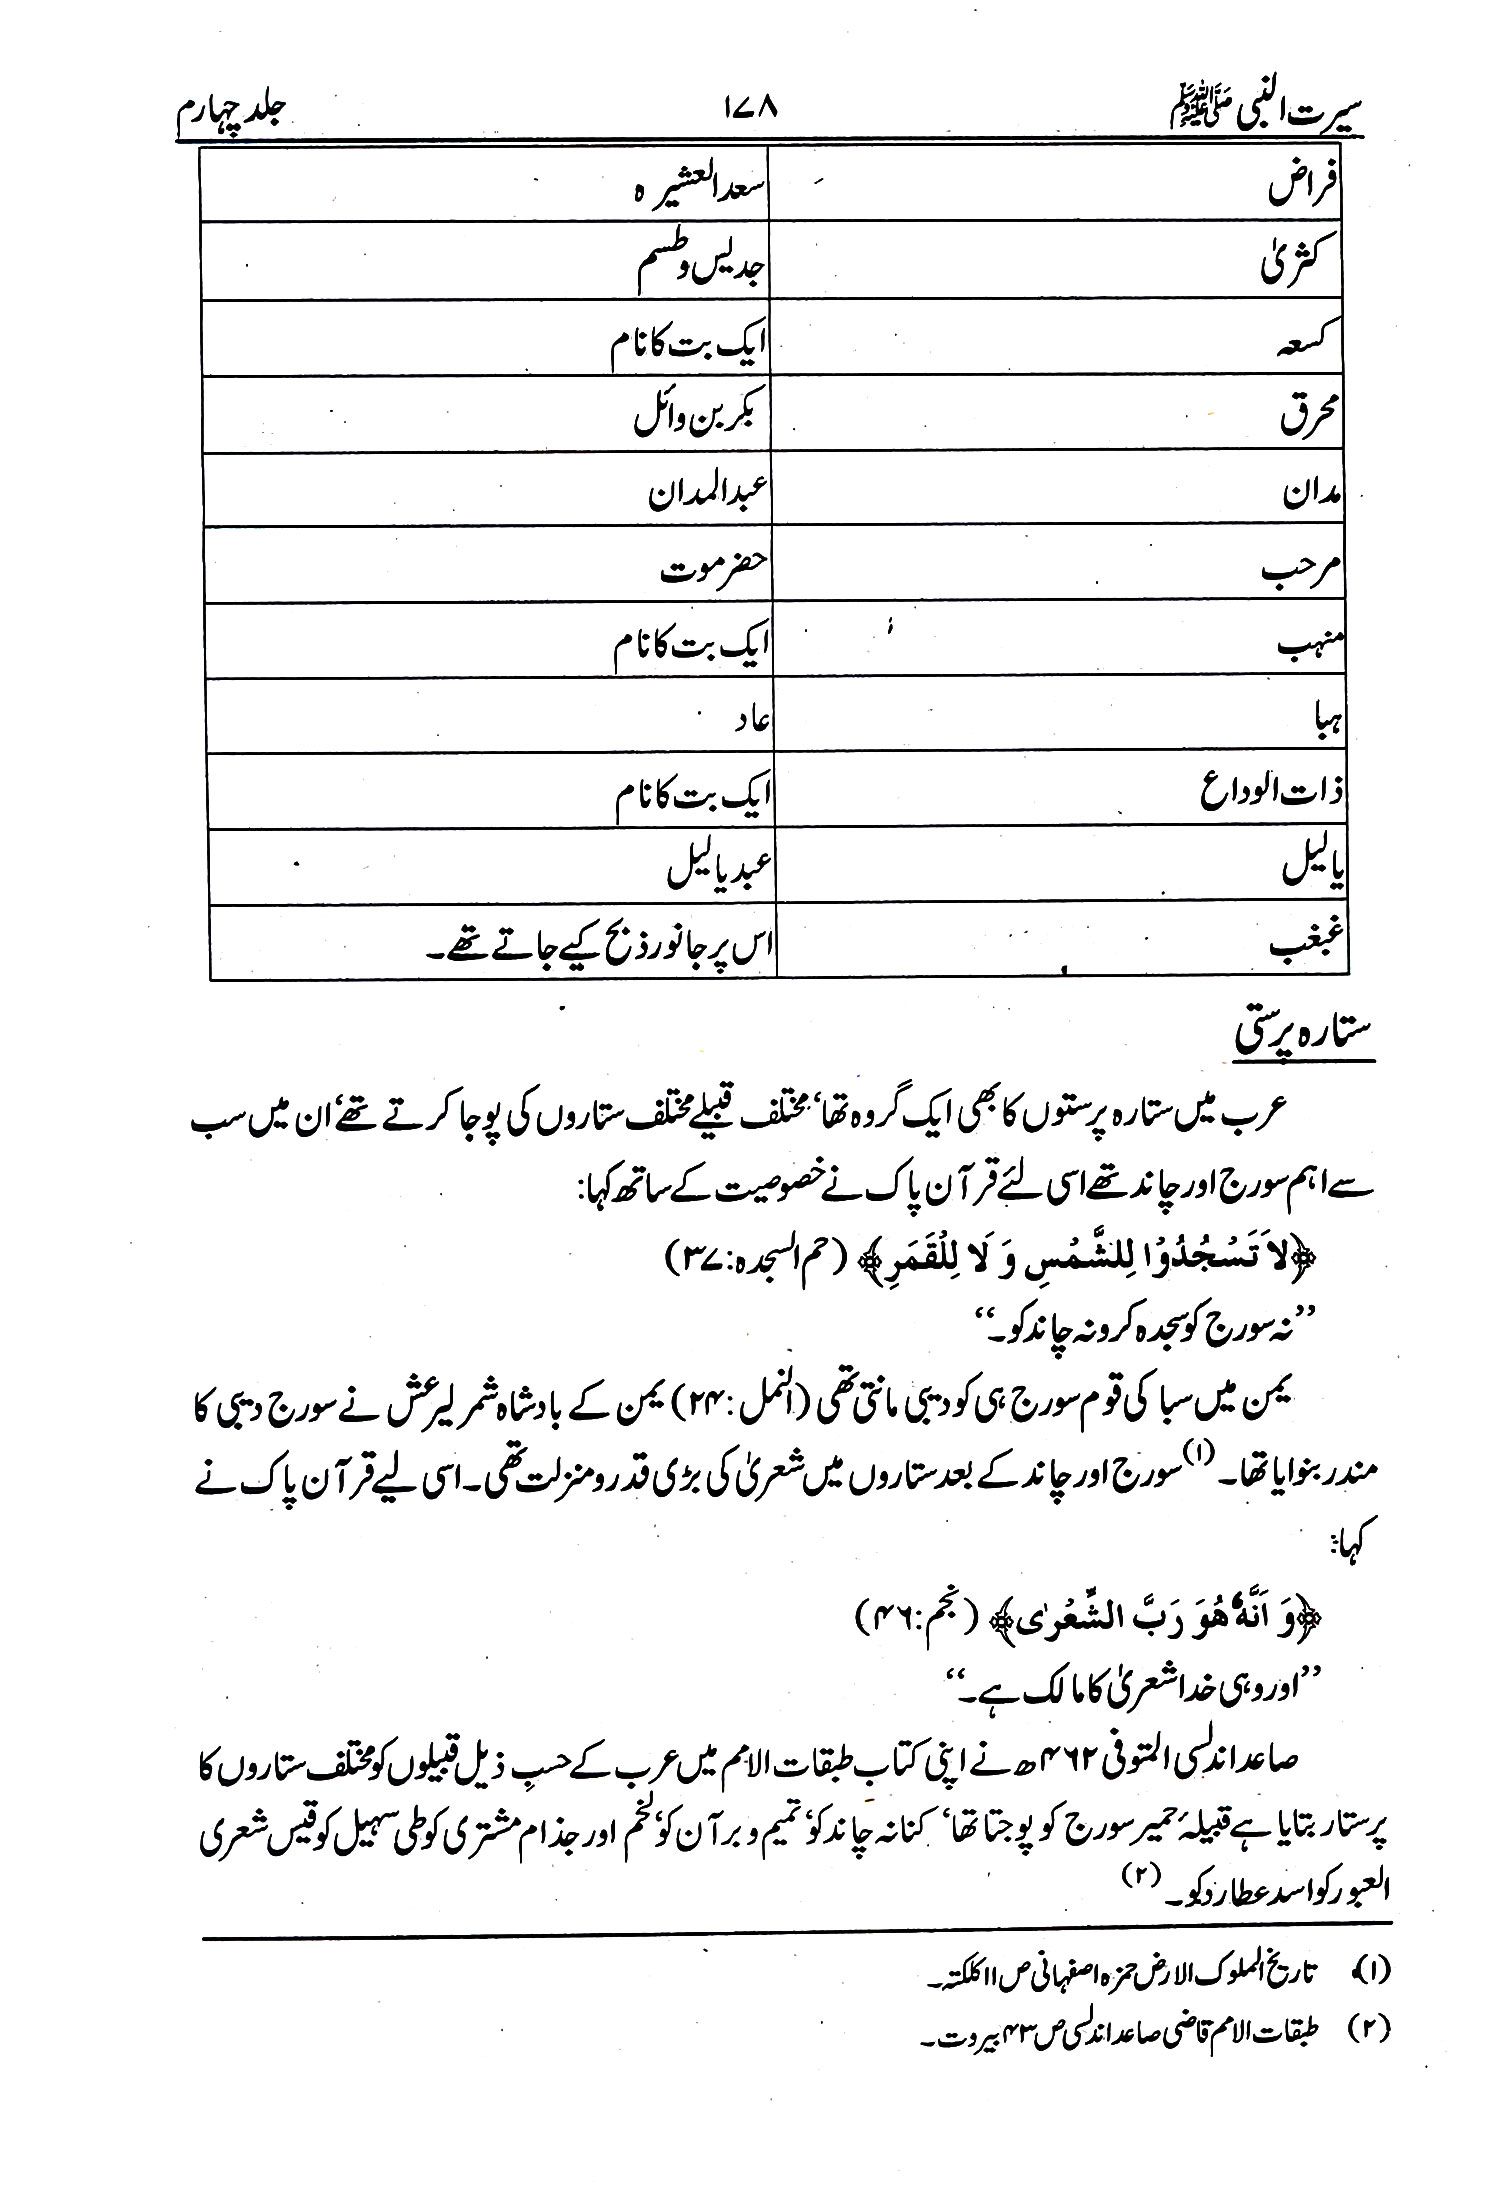 سیرت النبی ﷺ ۱۷۸ جلد چہارم
فراض سعد العشیرہ
کثریٰ جدیس وطسم
کسعہ ایک بت کا نام
محرق بکر بن وائل
مدان عبدالمدان
مرحب حضر موت
منہب ایک بت کا نام
ہبا عاد
ذات الوداع ایک بت کا نام
یالیل عبد یالیل
غبغب اس پر جانور ذبح کیے جاتے تھے۔
ستارہ پرستی
عرب میں ستارہ پرستوں کا بھی ایک گروہ تھا، مختلف قبیلے مختلف ستاروں کی پوجا کرتے تھے، ان میں سب
سے اہم سورج اور چاند تھے اسی لئے قرآن پاک نے خصوصیت کے ساتھ کہا:
﴿لاَ تَسْجُدُوْا لِلشَّمْسِ وَ لَا لِلْقَمَرِ﴾ (حم السجدہ: ۳۷)
’’نہ سورج کو سجدہ کرو نہ چاند کو۔‘‘
یمن میں سبا کی قوم سورج ہی کو دیبی مانتی تھی (النمل: ۲۴) یمن کے بادشاہ شمر لیرعش نے سورج دیبی کا
مندر بنوایا تھا۔ (۱) سورج اور چاند کے بعد ستاروں میں شعریٰ کی بڑی قدر و منزلت تھی۔ اسی لیے قرآن پاک نے
کہا:
﴿وَ اَنَّهٗ هُوَ رَبُّ الشِّعْرٰی﴾ (نجم: ۴۶)
’’اور وہی خدا شعریٰ کا مالک ہے۔‘‘
صاعد اندلسی المتوفی ۴۶۲ھ نے اپنی کتاب طبقات الامم میں عرب کے حسبِ ذیل قبیلوں کو مختلف ستاروں کا
پرستار بتایا ہے قبیلۂ حمیر سورج کو پوجتا تھا، کنانہ چاند کو، تمیم و برآن کو، لخم اور جذام مشتری کو طی سہیل کو قیس شعری
العبور کو اسد عطارد کو۔ (۲)
(۱) تاریخ الملوک الارض حمزہ اصفہانی ص ۱۱ کلکتہ۔
(۲) طبقات الامم قاضی صاعد اندلسی ص ۴۳ بیروت۔